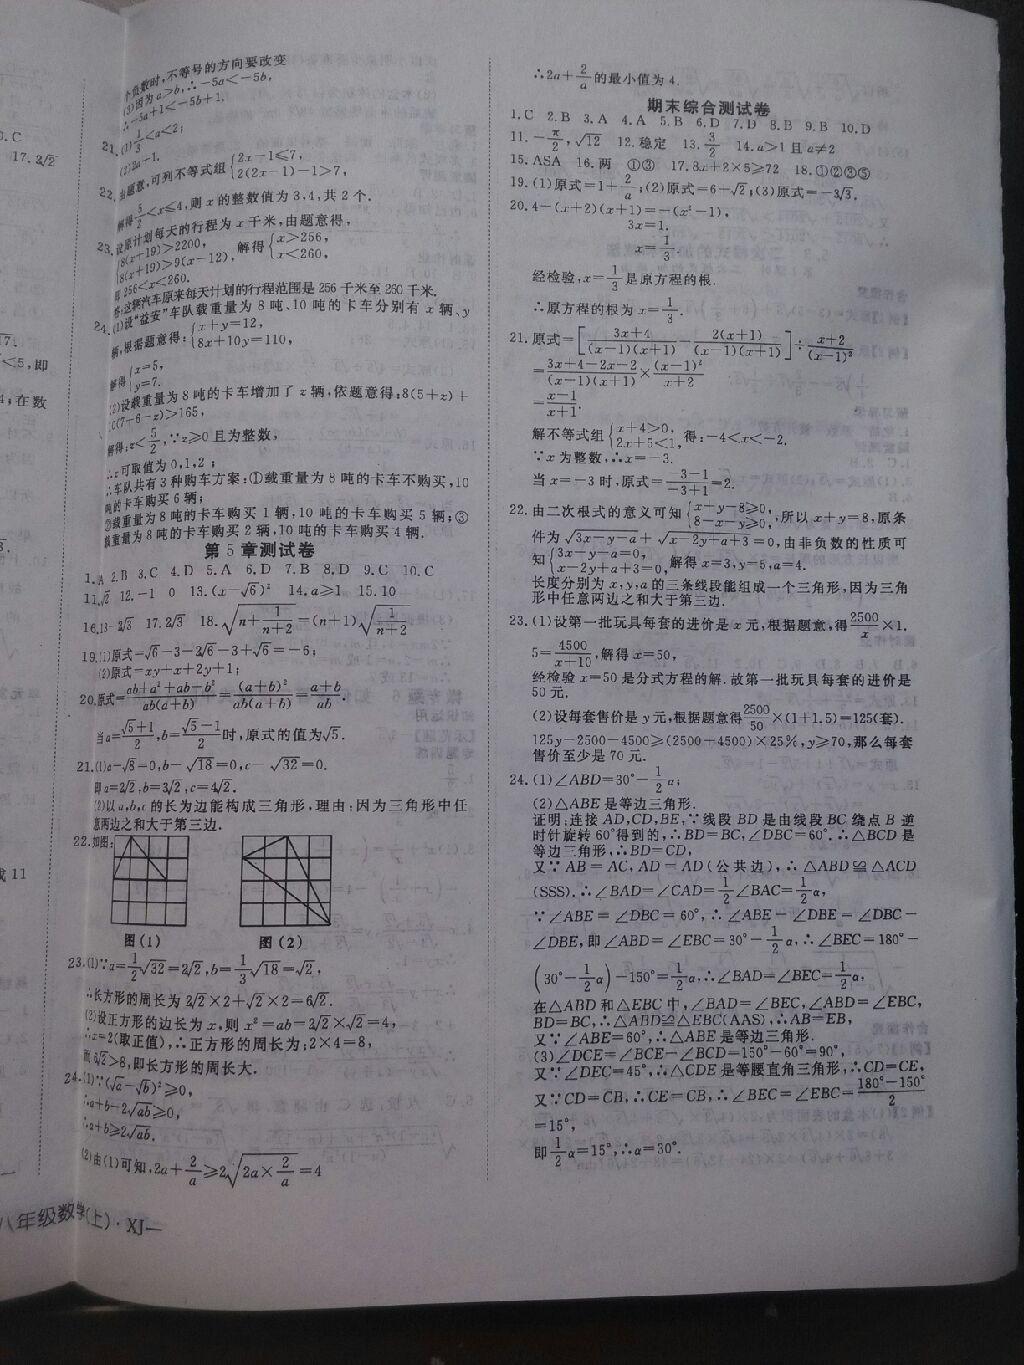 0.C
17.2√2
17.
<5,即
4;在数
或11
个负数时,不等号的方向要改变
(3)因为a>b,∴-5a<-5b,
∴-5a+1<-5b+1.
21.(1)1/3<a<2;
(2)3a-1.
22.由题意,可列不等式组{2x-1≤7, 2(2x-1)-1>7,
解得5/2<x≤4,则x的整数值为3,4,共2个.
23.设原计划每天的行程为x千米,由题意得,
{8(x+19)>2200, 8(x+19)>9(x-12), 解得{x>256, x<260.
即256<x<260.
答:这辆汽车原来每天计划的行程范围是256千米至260千米.
24.(1)设“益安”车队载重量为8吨、10吨的卡车分别有x辆、y
辆,根据题意得:{x+y=12, 8x+10y=110,
解得{x=5, y=7.
(2)设载重量为8吨的卡车增加了z辆,依题意得:8(5+z)+
10(7-6-z)>165,
解得:z<5/2,∵z≥0且为整数,
∴z可取值为0,1,2;
∴车队共有3种购车方案:①载重量为8吨的卡车不购买,10
吨的卡车购买6辆;
②载重量为8吨的卡车购买1辆,10吨的卡车购买5辆;③
载重量为8吨的卡车购买2辆,10吨的卡车购买4辆.
第5章测试卷
1.A 2.B 3.C 4.D 5.A 6.D 7.B 8.D 9.C 10.C
11.√2 12.-1 0 13.(x-√6)² 14.a≥1 15.10
16.13-2√3 17.2√3 18.√(n+1/(n+2))=(n+1)√(1/(n+2))
19.(1)原式=√6-3-2√6-3+√6=-6;
(2)原式=xy-x+2y+1;
20.原式=(ab+a²+ab+b²)/(ab(a+b))=(a+b)²/(ab(a+b))=(a+b)/ab.
当a=(√5+1)/2,b=(√5-1)/2时,原式的值为√5.
21.(1)a-√8=0,b-√18=0,c-√32=0.
即a=2√2,b=3√2,c=4√2.
(2)以a,b,c的长为边能构成三角形,理由:因为三角形中任
意两边之和大于第三边.
22.如图:
图(1) 图(2)
23.(1)∵a=1/2√32=2√2,b=1/3√18=√2,
∴长方形的周长为2√2×2+√2×2=6√2.
(2)设正方形的边长为x,则x²=ab=2√2×√2=4,
∴x=2(取正值),∴正方形的周长为:2×4=8,
而6√2>8,即长方形的周长大.
24.(1)∵(√a-√b)²≥0,
∴a+b-2√ab≥0,
∴a+b≥2√ab.
(2)由(1)可知,2a+2/a≥2√(2a×2/a)=4
八年级数学(上)·XJ—
∴2a+2/a的最小值为4.
期末综合测试卷
1.C 2.B 3.A 4.A 5.B 6.D 7.D 8.B 9.B 10.D
11.-π/2,√12 12.稳定 13.3/2 14.a>1且a≠2
15.ASA 16.两 ①③ 17.8x+2×5≥72 18.①②③⑤
19.(1)原式=1+2/a;(2)原式=6-√2;(3)原式=-3√3.
20.4-(x+2)(x+1)=-(x²-1),
3x=1,
x=1/3
经检验,x=1/3是原方程的根.
∴原方程的根为x=1/3.
21.原式=[(3x+4)/((x-1)(x+1))-2(x+1)/((x-1)(x+1))]÷(x+2)/(x-1)²
=(3x+4-2x-2)/((x-1)(x+1))×(x-1)²/(x+2)
=(x-1)/(x+1).
解不等式组{x+4>0, 2x+5<1,得:-4<x<-2.
∵x为整数,∴x=-3.
当x=-3时,原式=(-3-1)/(-3+1)=2.
22.由二次根式的意义可知{x-y-8≥0, 8-x-y≥0,所以x+y=8,原条
件为√(3x-y-a)+√(x-2y+a+3)=0,由非负数的性质可
知{3x-y-a=0, x-2y+a+3=0,解得x=3,y=5,a=4.
长度分别为x,y,a的三条线段能组成一个三角形,因为三角
形中任意两边之和大于第三边.
23.(1)设第一批玩具每套的进价是x元,根据题意,得2500/x×1.
5=4500/(x+10),解得x=50,
经检验x=50是分式方程的解.故第一批玩具每套的进价是
50元.
(2)设每套售价是y元,根据题意得2500/50×(1+1.5)=125(套).
125y-2500-4500≥(2500+4500)×25%,y≥70,那么每套
售价至少是70元.
24.(1)∠ABD=30°-1/2α;
(2)△ABE是等边三角形.
证明:连接AD,CD,BE,∵线段BD是由线段BC绕点B逆
时针旋转60°得到的,∴BD=BC,∠DBC=60°.∴△BCD是
等边三角形,∴BD=CD,
又∵AB=AC,AD=AD(公共边),∴△ABD≌△ACD
(SSS).∴∠BAD=∠CAD=1/2∠BAC=1/2α,
∵∠ABE=∠DBC=60°,∴∠ABE-∠DBE=∠DBC-
∠DBE,即∠ABD=∠EBC=30°-1/2α,∴∠BEC=180°-
(30°-1/2α)-150°=1/2α.∴∠BAD=∠BEC=1/2α.
在△ABD和△EBC中,∠BAD=∠BEC,∠ABD=∠EBC,
BD=BC,∴△ABD≌△EBC(AAS),∴AB=EB,
又∵∠ABE=60°,∴△ABE是等边三角形.
(3)∠DCE=∠BCE-∠BCD=150°-60°=90°,
又∵∠DEC=45°,∴△CDE是等腰直角三角形,∴CD=CE,
又∵CD=CB,∴CE=CB,∴∠BEC=∠EBC=(180°-150°)/2
=15°,
即1/2α=15°,∴α=30°.